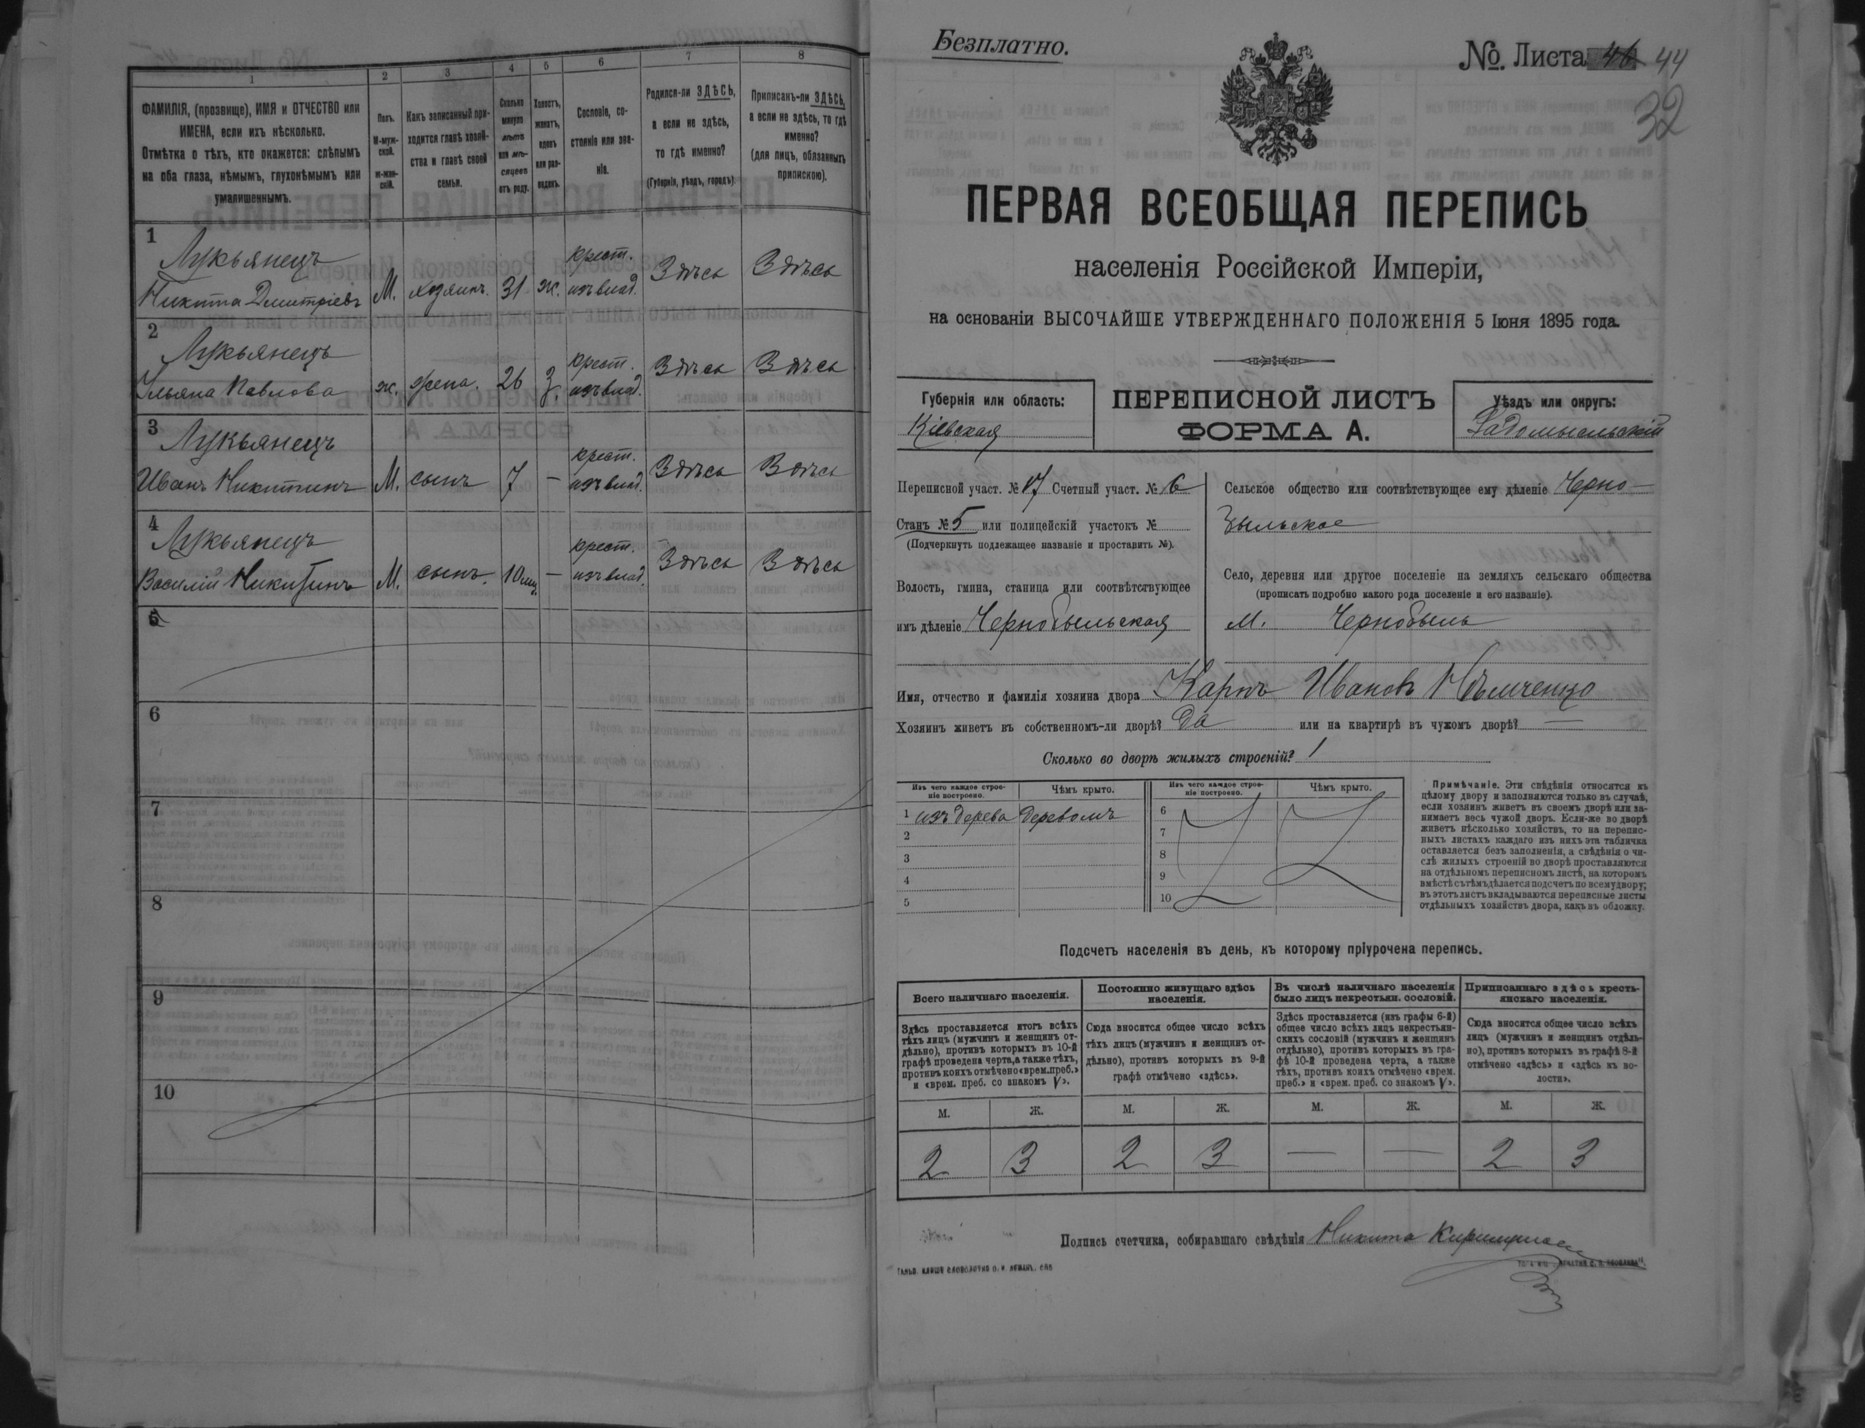 1 2 3 4 5 6 7 8
ФАМИЛІЯ, (прозвище), ИМЯ и ОТЧЕСТВО или
ИМЕНА, если ихъ нѣсколько.
Отмѣтка о тѣхъ, кто окажется: слѣпымъ
на оба глаза, нѣмымъ, глухонѣмымъ или
умалишеннымъ.
Полъ.
М-муж-
ской.
ж-жен-
скій.
Какъ записанный при-
ходится главѣ хозяй-
ства и главѣ своей
семьи.
Сколько
минуло
лѣтъ
или мѣ-
сяцевъ
отъ роду.
Холостъ,
женатъ,
вдовъ
или раз-
веденъ.
Сословіе, со-
стояніе или зва-
ніе.
Родился-ли ЗДѢСЬ,
а если не здѣсь,
то гдѣ именно?
(Губернія, уѣздъ, городъ)
Приписанъ-ли ЗДѢСЬ,
а если не здѣсь, то гдѣ
именно?
(для лицъ, обязанныхъ
припискою).
1
Лукьянецъ
Никита Дмитріевъ М. хозяинъ. 31 ж. крест. изъ влад. Здѣсь Здѣсь
2
Лукьянецъ
Ульяна Павлова ж. жена. 26 з. крест. изъ влад. Здѣсь Здѣсь
3
Лукьянецъ
Иванъ Никитинъ М. сынъ 7 — крест. изъ влад. Здѣсь Здѣсь
4
Лукьянецъ
Василій Никитинъ М. сынъ. 10 мц. — крест. изъ влад. Здѣсь Здѣсь
5
6
7
8
9
10
Безплатно.
№ Листа 46 44
32
ПЕРВАЯ ВСЕОБЩАЯ ПЕРЕПИСЬ
населенія Россійской Имперіи,
на основаніи ВЫСОЧАЙШЕ УТВЕРЖДЕННАГО ПОЛОЖЕНІЯ 5 Іюня 1895 года.
Губернія или область:
Кіевская
ПЕРЕПИСНОЙ ЛИСТЪ
ФОРМА А.
Уѣздъ или округъ:
Радомысльскій
Переписной участ. № 17 Счетный участ. № 6
Станъ № 5 или полицейскій участокъ №
(Подчеркнуть подлежащее названіе и проставить №).
Волость, гмина, станица или соотвѣтствующее
имъ дѣленіе Чернобыльская
Сельское общество или соотвѣтствующее ему дѣленіе Черно-
быльское
Село, деревня или другое поселеніе на земляхъ сельскаго общества
(прописать подробно какого рода поселеніе и его названіе).
М. Чернобыль
Имя, отчество и фамилія хозяина двора Карпъ Ивановъ Нѣмченко
Хозяинъ живетъ въ собственномъ-ли дворѣ? Да или на квартирѣ въ чужомъ дворѣ? —
Сколько во дворѣ жилыхъ строеній? 1
Изъ чего каждое строе-
ніе построено.
Чѣмъ крыто.
Изъ чего каждое строе-
ніе построено.
Чѣмъ крыто.
1 изъ дерева деревомъ
2
3
4
5
6
7
8
9
10
Примѣчаніе. Эти свѣдѣнія относятся къ
цѣлому двору и заполняются только въ случаѣ,
если хозяинъ живетъ въ своемъ дворѣ или за-
нимаетъ весь чужой дворъ. Если-же во дворѣ
живетъ нѣсколько хозяйствъ, то на перепис-
ныхъ листахъ каждаго изъ нихъ эта табличка
оставляется безъ заполненія, а свѣдѣнія о чи-
слѣ жилыхъ строеній во дворѣ проставляются
на отдѣльномъ переписномъ листѣ, на которомъ
вмѣстѣ съ тѣмъ дѣлается подсчетъ по всему двору;
въ этотъ листъ вкладываются переписные листы
отдѣльныхъ хозяйствъ двора, какъ въ обложку.
Подсчетъ населенія въ день, къ которому пріурочена перепись.
Всего наличнаго населенія.
Здѣсь проставляется итогъ всѣхъ
тѣхъ лицъ (мужчинъ и женщинъ от-
дѣльно), противъ которыхъ въ 10-й
графѣ проведена черта, а также тѣхъ,
противъ коихъ отмѣчено «врем. преб.»
и «врем. преб. со знакомъ V».
Постоянно живущаго здѣсь
населенія.
Сюда вносится общее число всѣхъ
тѣхъ лицъ (мужчинъ и женщинъ от-
дѣльно), противъ которыхъ въ 9-й
графѣ отмѣчено «здѣсь».
Въ числѣ наличнаго населенія
было лицъ некрестьян. сословій.
Здѣсь проставляется (изъ графы 6-й)
общее число всѣхъ лицъ некрестьян-
скихъ сословій (мужчинъ и женщинъ
отдѣльно), противъ которыхъ въ гра-
фѣ 10-й проведена черта, а также
тѣхъ, противъ коихъ отмѣчено «врем.
преб.» и «врем. преб. со знакомъ V».
Приписаннаго здѣсь кресть-
янскаго населенія.
Сюда вносится общее число всѣхъ
лицъ (мужчинъ и женщинъ отдѣль-
но), противъ которыхъ въ графѣ 8-й
отмѣчено «здѣсь» и «здѣсь въ во-
лости».
М. Ж. М. Ж. М. Ж. М. Ж.
2 3 2 3 — — 2 3
Подпись счетчика, собиравшаго свѣдѣнія Никита